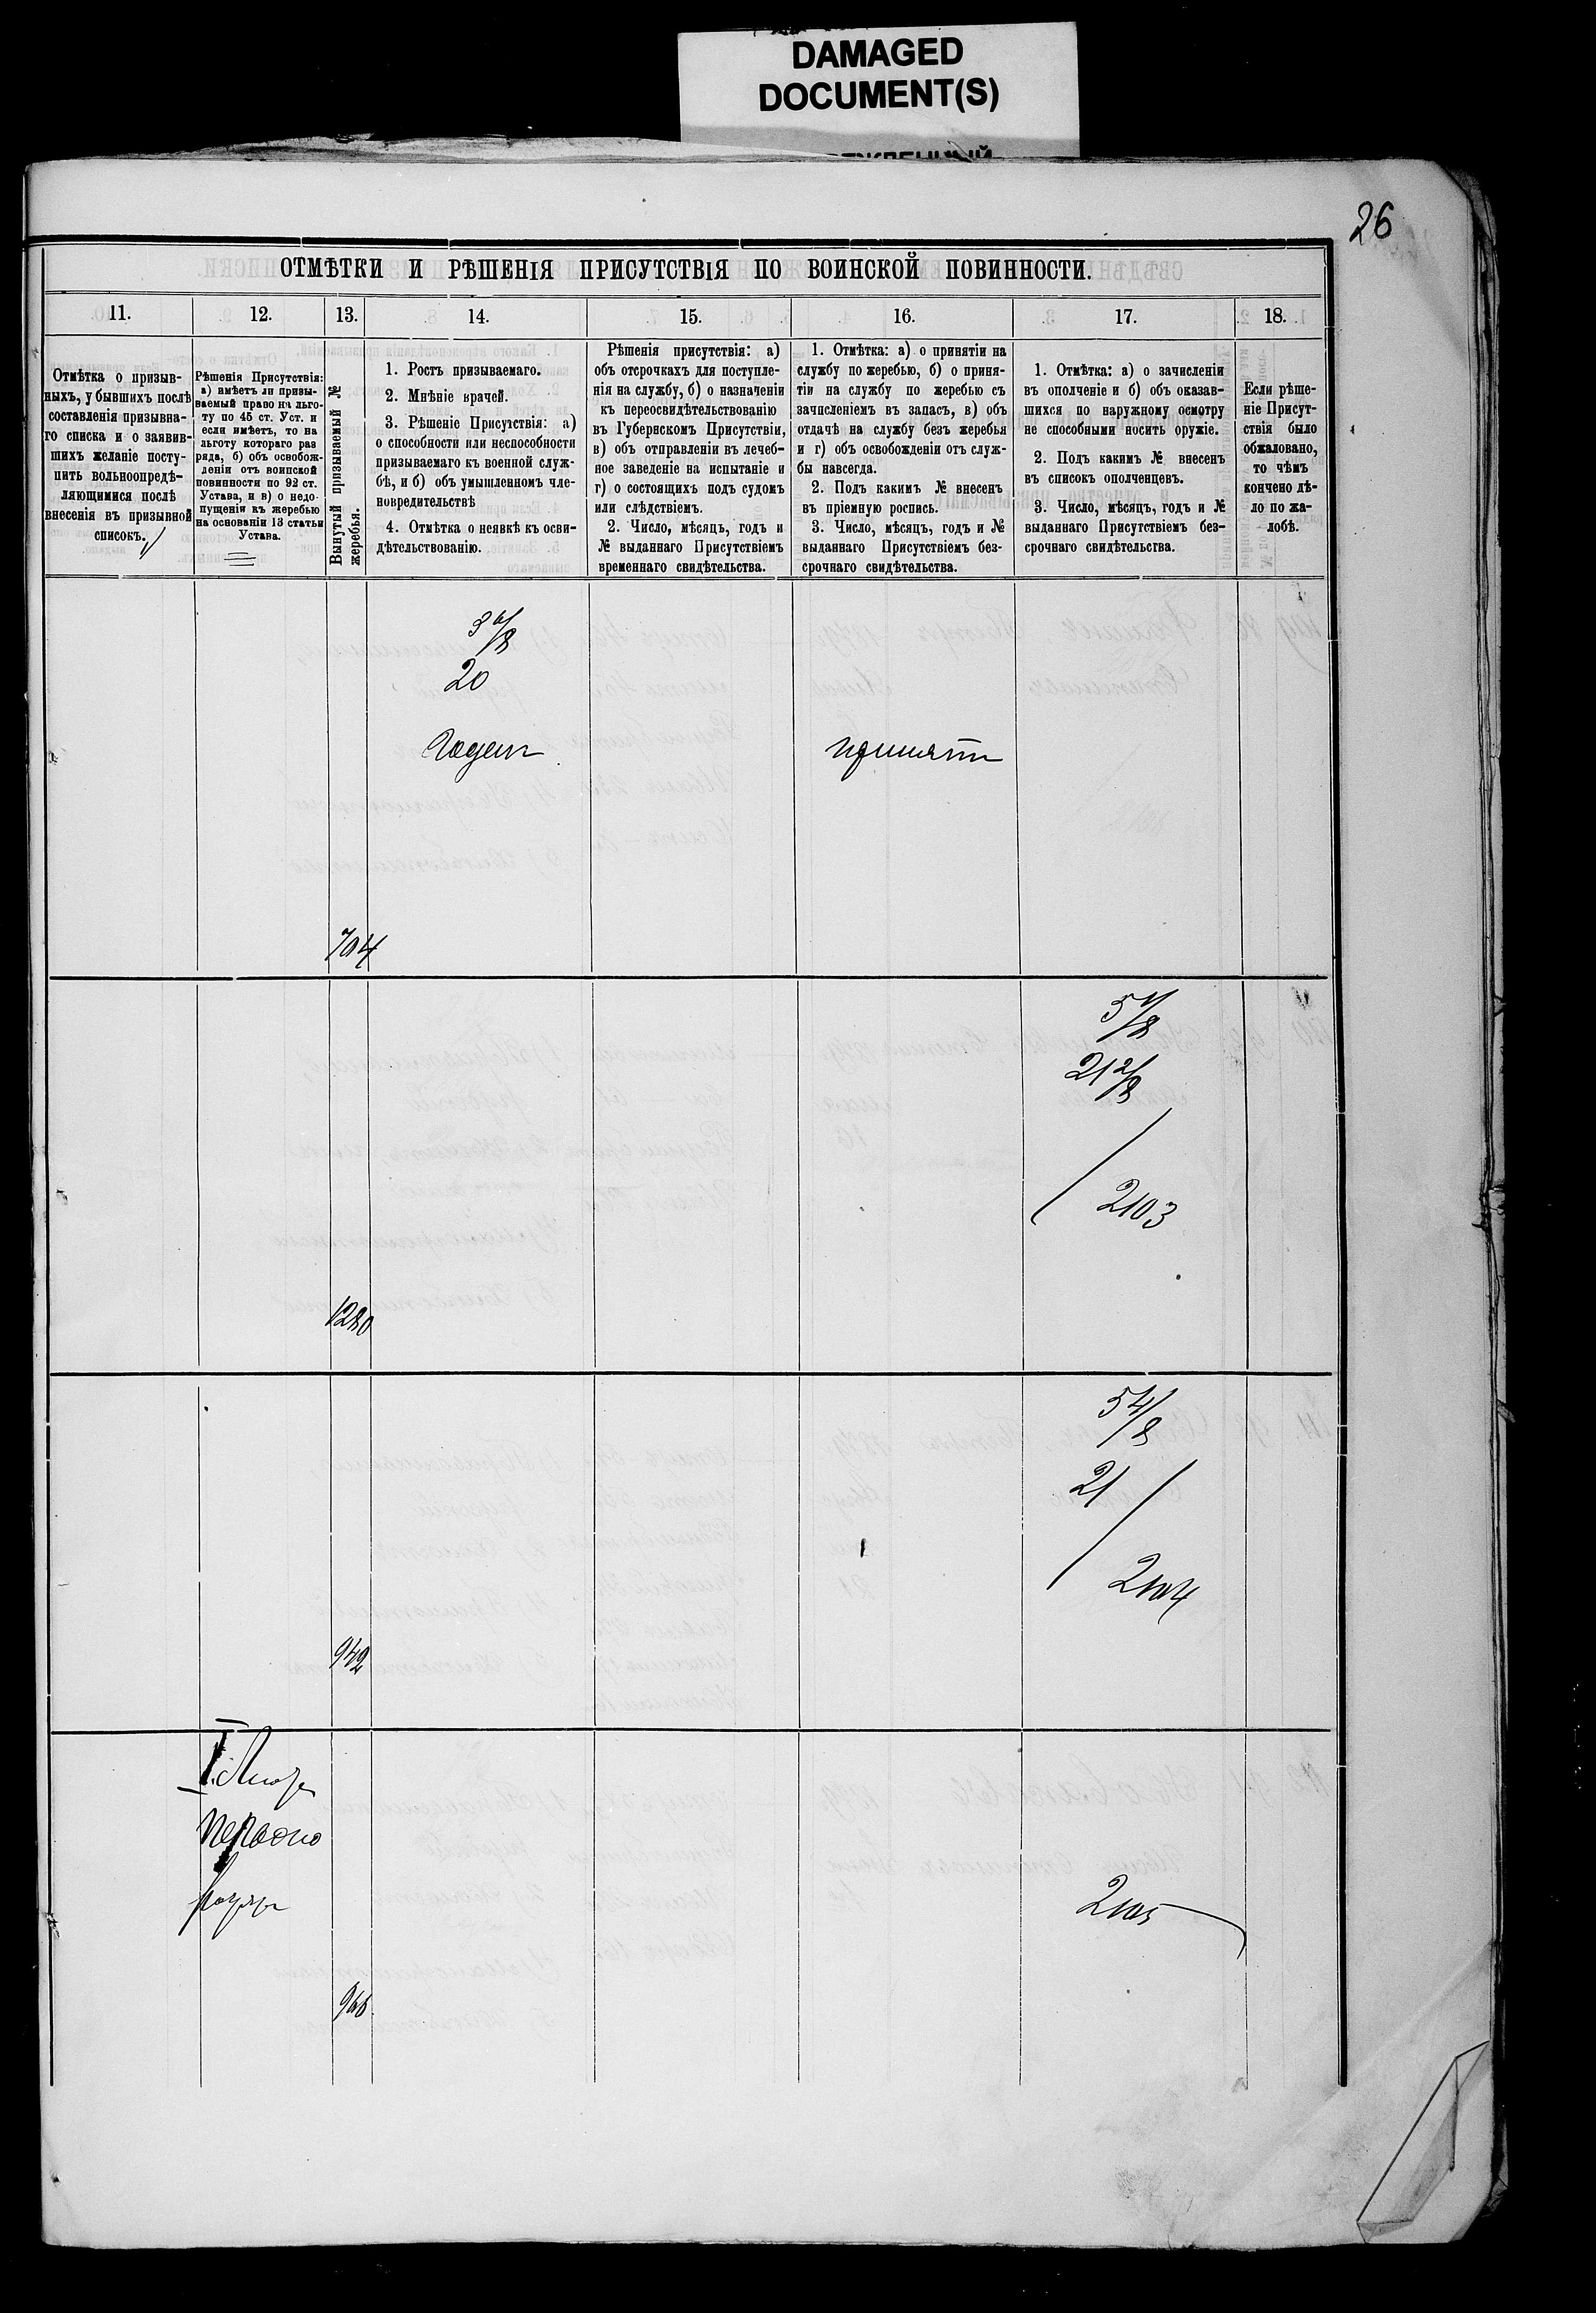 DAMAGED
DOCUMENT(S)
26
ОТМѢТКИ И РѢШЕНІЯ ПРИСУТСТВІЯ ПО ВОИНСКОЙ ПОВИННОСТИ.
11.
12.
13.
14.
15.
16.
17.
18.
Отмѣтка о призыв-
ныхъ, у бывшихъ послѣ
составленія призывна-
го списка и о заявив-
шихъ желаніе посту-
пить вольноопредѣ-
ляющимися послѣ
внесенія въ призывной
списокъ.
Рѣшенія Присутствія:
а) имѣетъ ли призы-
ваемый право на льго-
ту по 45 ст. Уст. и
если имѣетъ, то на
льготу котораго раз
ряда, б) объ освобож-
деніи отъ воинской
повинности по 92 ст.
Устава, и в) о недо-
пущеніи къ жеребью
на основаніи 13 статьи
Устава.
Вынутый призываемый №
жеребья.
1. Ростъ призываемаго.
2. Мнѣніе врачей.
3. Рѣшеніе Присутствія: а)
о способности или неспособности
призываемаго къ военной служ-
бѣ, и б) объ умышленномъ чле-
новредительствѣ
4. Отмѣтка о неявкѣ къ осви-
дѣтельствованію.
Рѣшенія присутствія: а)
объ отсрочкахъ для поступле-
нія на службу, б) о назначеніи
къ переосвидѣтельствованію
въ Губернскомъ Присутствіи,
в) объ отправленіи въ лечеб-
ное заведеніе на испытаніе и
г) о состоящихъ подъ судомъ
или слѣдствіемъ.
2. Число, мѣсяцъ, годъ и
№ выданнаго Присутствіемъ
временнаго свидѣтельства.
1. Отмѣтка: а) о принятіи на
службу по жеребью, б) о приня-
тіи на службу по жеребью съ
зачисленіемъ въ запасъ, в) объ
отдачѣ на службу безъ жеребья
и г) объ освобожденіи отъ служ-
бы навсегда.
2. Подъ какимъ № внесенъ
въ пріемную роспись.
3. Число, мѣсяцъ, годъ и №
выданнаго Присутствіемъ без-
срочнаго свидѣтельства.
1. Отмѣтка: а) о зачисленіи
въ ополченіе и б) объ оказав-
шихся по наружному осмотру
не способными носить оружіе.
2. Подъ какимъ № внесенъ
въ списокъ ополченцевъ.
3. Число, мѣсяцъ, годъ и №
выданнаго Присутствіемъ без-
срочнаго свидѣтельства.
Если рѣше-
ніе Присут-
ствія было
обжаловано,
то чѣмъ
кончено дѣ-
ло по жа-
лобѣ.
20
годен
принят
704
21 2/8
2103
1280
5 4/8
21
2104
942
2105